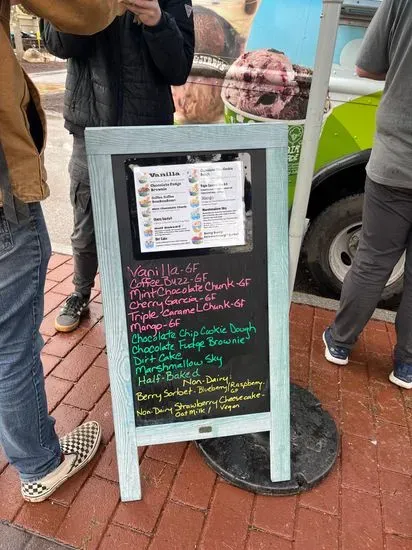 Vanilla
Chocolate Fudge
Brownie
Coffee Coffee
Mint Chocolate Chunk
Mango
Vanilla-GF
Coffee Buzz-GF
Mint Chocolate Chunk-GF
Cherry Garcia-GF
Triple Caramel Chunk-GF
Mango-GF
Chocolate Chip Cookie Dough
Chocolate Fudge Brownie
Dirt Cake
Marshmallow Sky
Half-Baked
Non-Dairy:
Berry Sorbet-Blueberry/Raspberry-GF
Non-Dairy Strawberry Cheesecake-
Oat Milk/Vegan